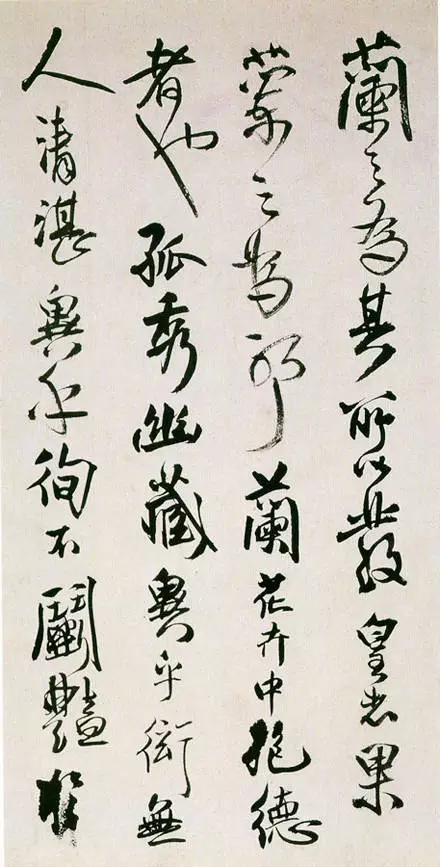 蘭之為其所以發皇者果
之為耶蘭花卉中抱德
者也孤秀幽藏異乎衒無
人清湛異乎徇不鬭豔